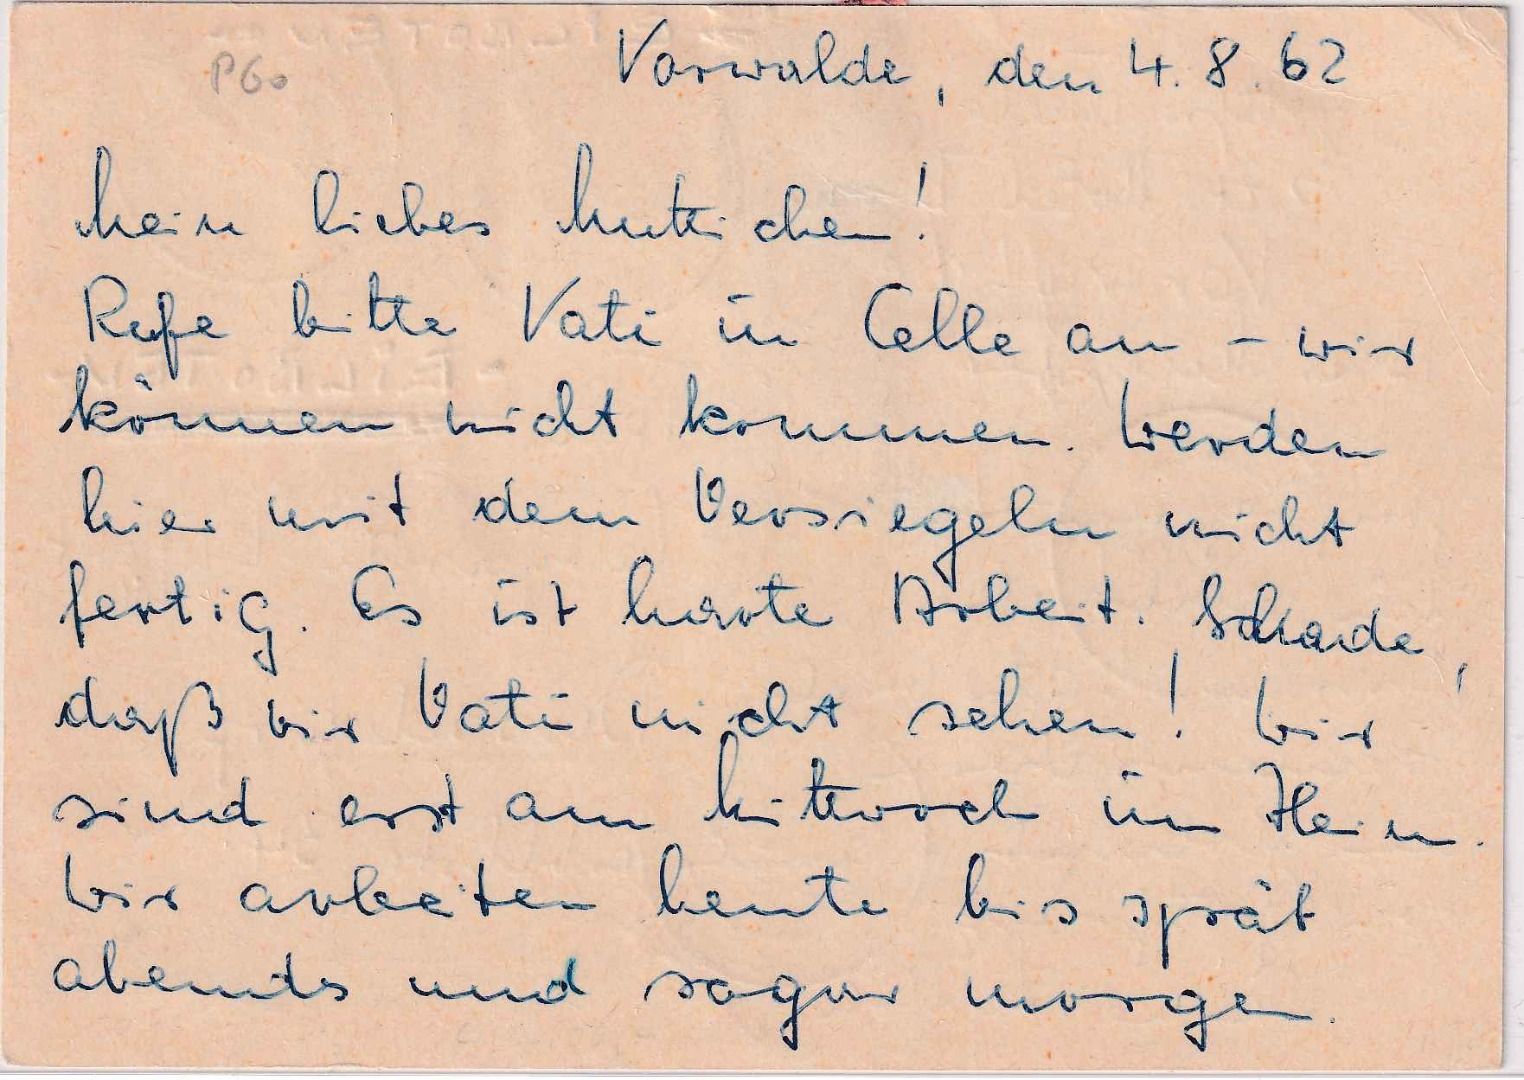 P60
Vorwalde, den 4.8.62
Mein liebes Muttichen!
Rufe bitte Vati in Celle an - wir
können nicht kommen. Werden
hier mit dem Versiegeln nicht
fertig. Es ist harte Arbeit. Schade,
daß wir Vati nicht sehen! Wir
sind erst am Mittwoch im Heim.
Wir arbeiten heute bis spät
abends und sogar morgen.